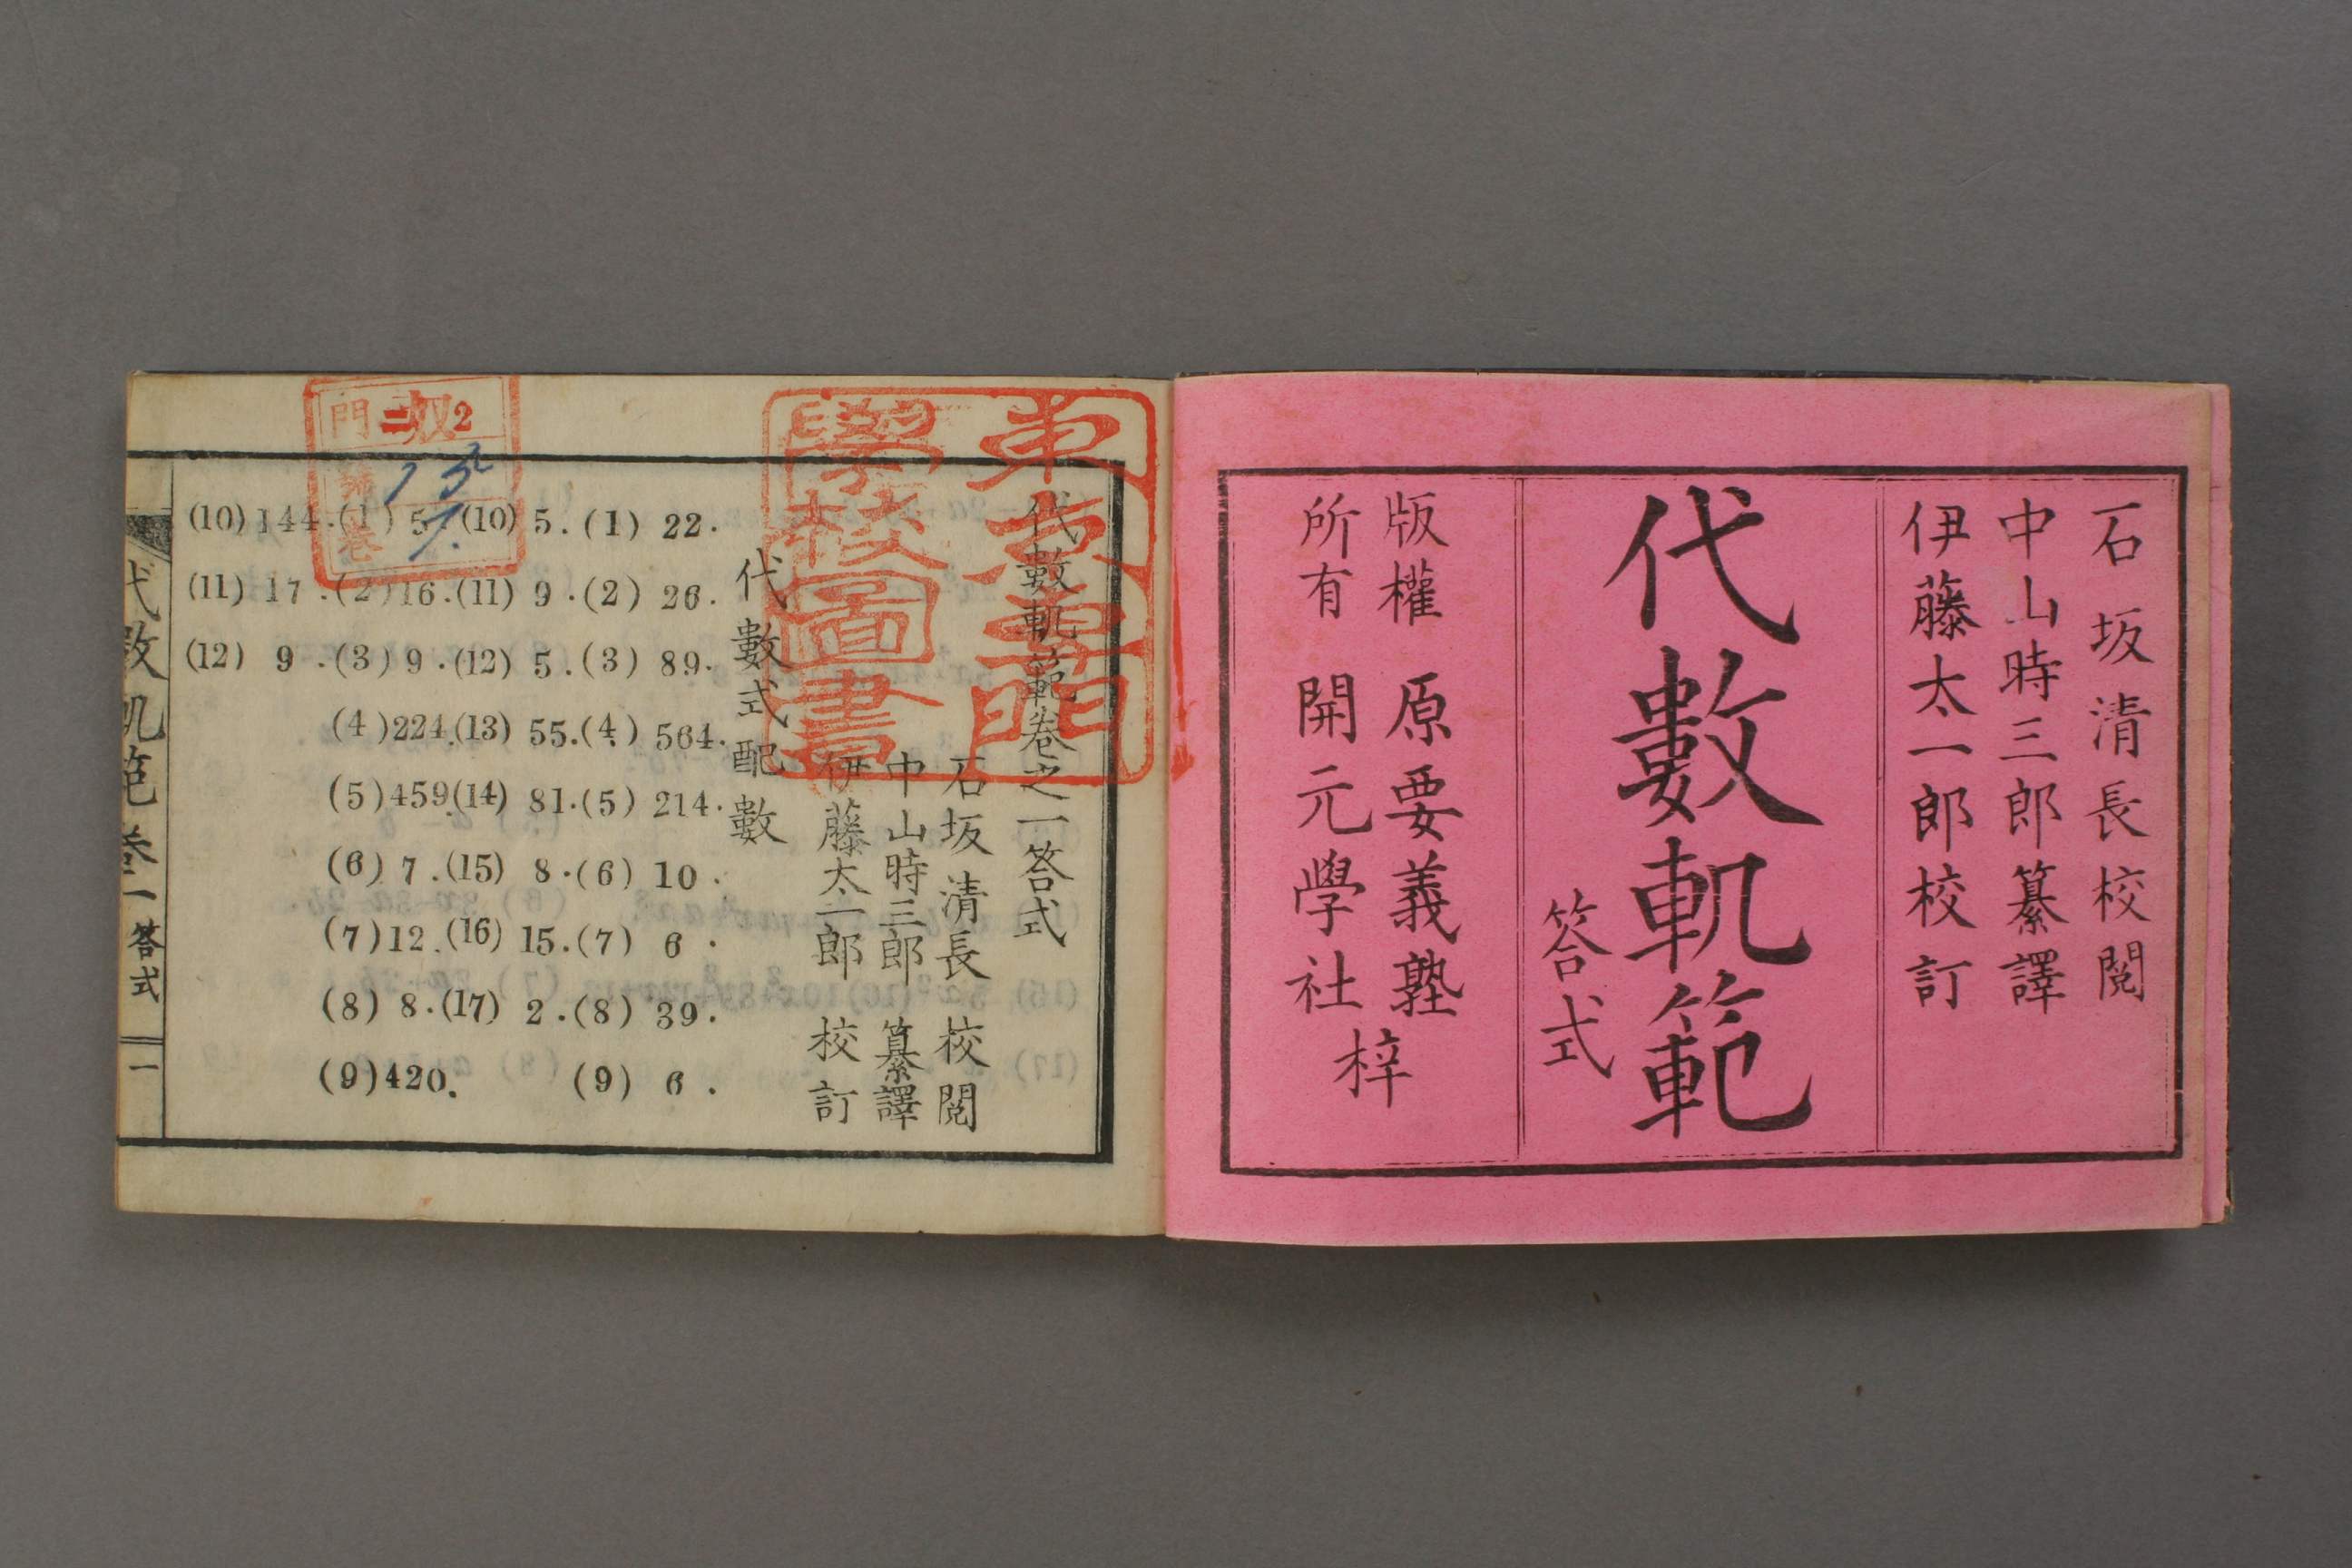 石坂清長校閲
中山時三郎纂譯
伊藤太一郎校訂
代數軌範
答式
版權
所有
原要義塾
開元學社
梓
東京專門
學校圖書
代數軌範卷之一答式
石坂清長 校閲
中山時三郎 纂譯
伊藤太一郎 校訂
代數式配數
(1) 22.
(2) 26.
(3) 89.
(4) 564.
(5) 214.
(6) 10.
(7) 6.
(8) 39.
(9) 6.
(10) 5.
(11) 9.
(12) 5.
(13) 55.
(14) 81.
(15) 8.
(16) 15.
(17) 2.
(1) 5.
(2) 16.
(3) 9.
(4) 224.
(5) 459.
(6) 7.
(7) 12.
(8) 8.
(9) 420.
(10) 144.
(11) 17.
(12) 9.
門 二 2
卷
代數軌範 卷一 答式 一